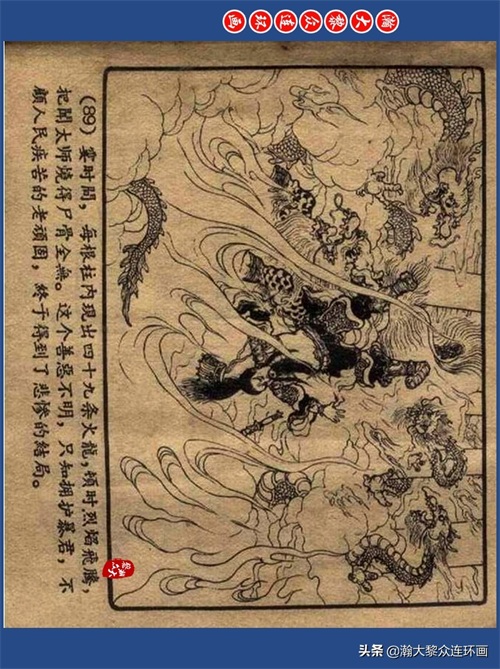 瀚大黎众连环画
(89) 霎时間,每根柱内现出四十九条火龍,頓时烈焰飛騰,
把聞太师燒得尸骨全無。这个善恶不明,只知拥护暴君,不
顧人民疾苦的老頑固,終于得到了悲慘的結局。
头条 @瀚大黎众连环画